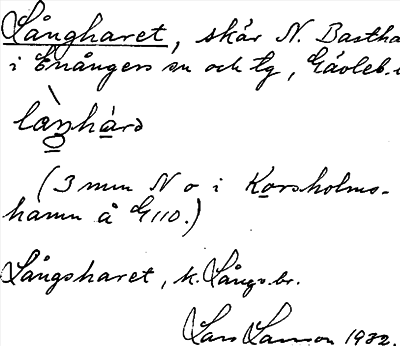 Långharet, skär N. Bastha
i Enångers sn och tg, Gävleb. l
(3 mm N o i Korsholms-
hamn å G110.)
Långsharet, k. Långs.br.
Lars Larsson 1932.